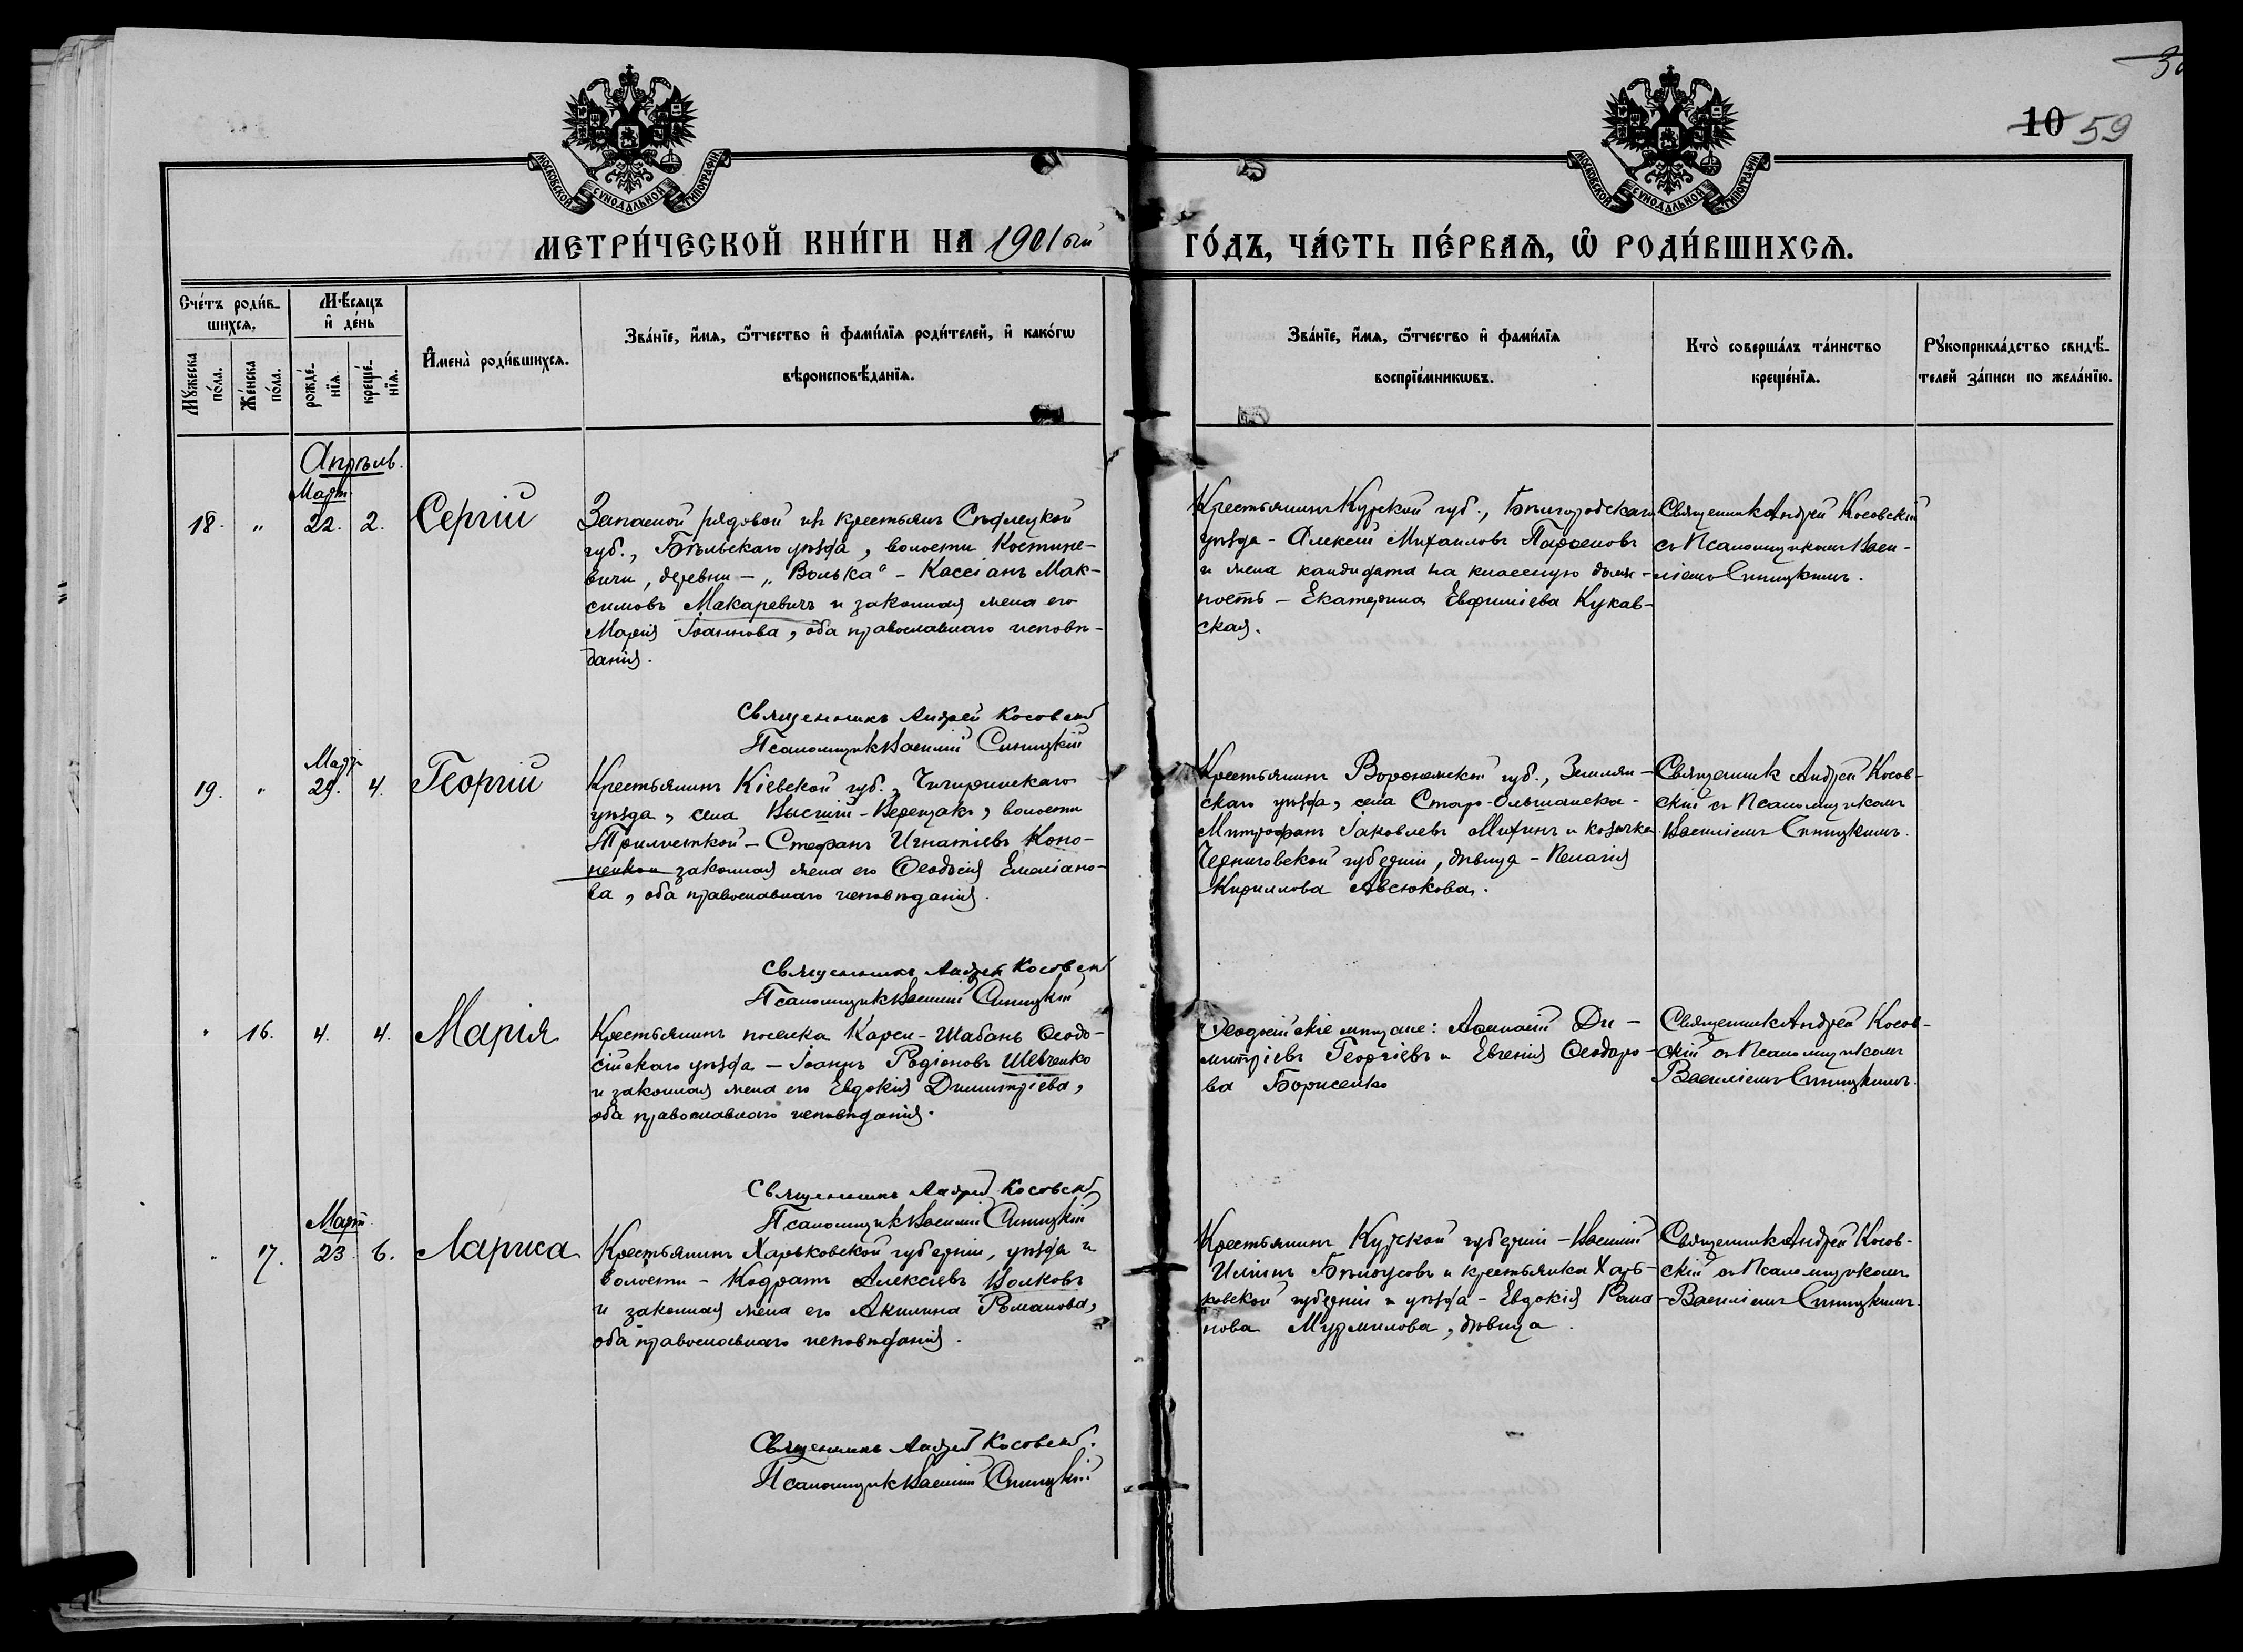 30
10 59
МОСКОВСКОЙ СѴНОДАЛЬНОЙ ТИПОГРАФІИ
МОСКОВСКОЙ СѴНОДАЛЬНОЙ ТИПОГРАФІИ
МЕТРИ́ЧЕСКОЙ КНИ́ГИ НА 1901 ый ГО́ДЪ, ЧА́СТЬ ПЕ́РВАѦ, Ѡ҆ РОДИ́ВШИХСѦ.
Сче́тъ роди́в-
шихсѧ.
Мꙋ́жеска по́ла.
Же́нска по́ла.
Мѣ́сѧцъ
и҆ де́нь
рожде́-нїѧ.
креще́-нїѧ.
И҆мена̀ роди́вшихсѧ.
Зва́нїе, и҆́мѧ, ѻ҆́тчество и҆ фами́лїѧ роди́телей, и҆ како́гѡ
вѣроисповѣ́данїѧ.
Зва́нїе, и҆́мѧ, ѻ҆́тчество и҆ фами́лїѧ
воспрїе́мникѡвъ.
Кто̀ соверша́лъ та́инство
креще́нїѧ.
Рꙋкоприкла́дство свидѣ́-
телей за́писи по жела́нїю.
Апрѣль.
Март
18. " 22. 2. Сергій
Запасной рядовой изъ крестьянъ Сѣдлецкой
губ., Бѣльскаго уѣзда, волости Костене-
вичи, деревни - „Волька“ - Кассіанъ Мак-
симовъ Макаревичъ и законная жена его
Марія Іоаннова, оба православнаго исповѣ-
данія.
Священникъ Андрей Косовскій
Псаломщикъ Василій Синицкій
Крестьянинъ Курской губ., Бѣлгородскаго
уѣзда - Алексій Михаиловъ Парѳеновъ
и жена кандидата на классную долж-
ность - Екатерина Евфиміева Кукав-
ская.
Священникъ Андрей Косовскій
съ Псаломщикомъ Васи-
ліемъ Синицкимъ.
Март
19. " 29. 4. Георгій
Крестьянинъ Кіевской губ., Чигиринскаго
уѣзда, села Высшій-Верещакъ, волости
Трилѣсской - Стефанъ Игнатіевъ Коно-
ненко и законная жена его Ѳеодосія Емеліано-
ва, оба православнаго исповѣданія.
Священникъ Андрей Косовскій
Псаломщикъ Василій Синицкій
Крестьянинъ Воронежской губ., Землян-
скаго уѣзда, села Старо-Ольшанска -
Митрофанъ Іаковлевъ Михинъ и козачка
Черниговской губерніи, дѣвица - Пелагія
Кириллова Авсюкова.
Священникъ Андрей Косов-
скій съ Псаломщикомъ
Василіемъ Синицкимъ.
" 16. 4. 4. Марія
Крестьянинъ поселка Карси-Шабань Ѳеодо-
сійскаго уѣзда - Іоаннъ Родіоновъ Шевченко
и законная жена его Евдокія Димитріева,
оба православнаго исповѣданія.
Священникъ Андрей Косовскій
Псаломщикъ Василій Синицкій
Ѳеодосійскіе мѣщане: Аѳанасій Ди-
митріевъ Георгіевъ и Евгенія Ѳеодоро-
ва Борисенко
Священникъ Андрей Косов-
скій съ Псаломщикомъ
Василіемъ Синицкимъ.
Март
" 17. 23. 6. Лариса
Крестьянинъ Харьковской губерніи, уѣзда и
волости - Кодратъ Алексіевъ Волковъ
и законная жена его Акилина Романова,
оба православнаго исповѣданія.
Священникъ Андрей Косовскій.
Псаломщикъ Василій Синицкій
Крестьянинъ Курской губерніи - Василій
Иліинъ Бѣлоусовъ и крестьянка Харь-
ковской губерніи и уѣзда - Евдокія Рома-
нова Мурмилова, дѣвица.
Священникъ Андрей Косов-
скій съ Псаломщикомъ
Василіемъ Синицкимъ.